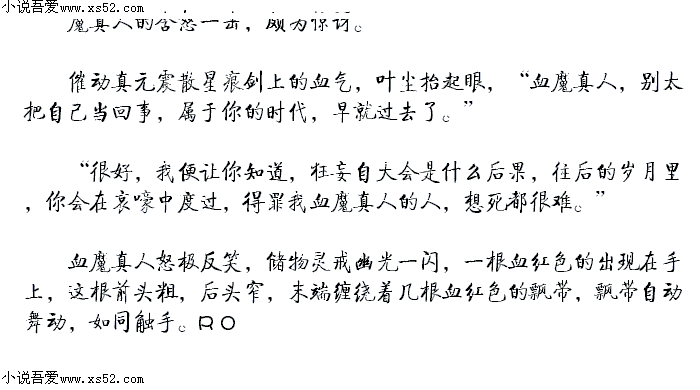 小说吾爱www.xs52.com
魔真人的含怒一击，颇为惊讶。
催动真元震散星痕剑上的血气，叶尘抬起眼，“血魔真人，别太
把自己当回事，属于你的时代，早就过去了。”
“很好，我便让你知道，狂妄自大会是什么后果，往后的岁月里
，你会在哀嚎中度过，得罪我血魔真人的人，想死都很难。”
血魔真人怒极反笑，储物灵戒幽光一闪，一根血红色的出现在手
上，这根前头粗，后头窄，末端缠绕着几根血红色的飘带，飘带自动
舞动，如同触手。RO
小说吾爱www.xs52.com